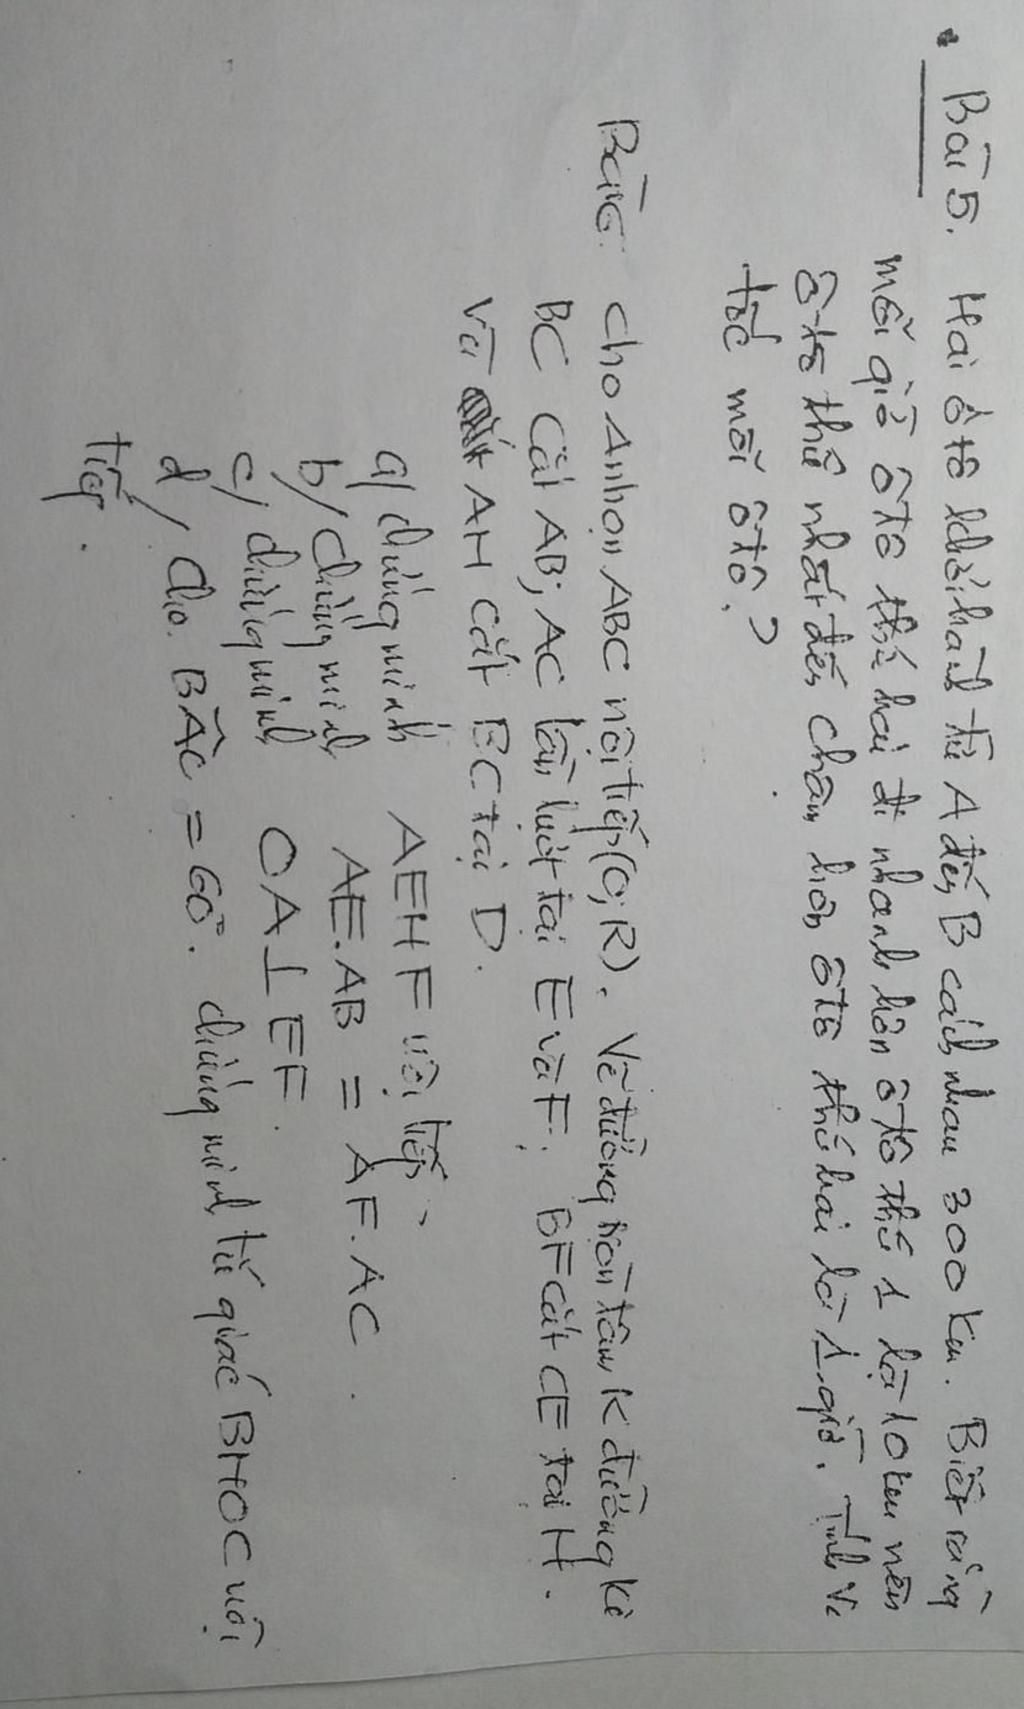 Bài 5. Hai ô tô khởi hành từ A đến B cách nhau 300 km. Biết rằng
mỗi giờ ô tô thứ hai đi nhanh hơn ô tô thứ 1 là 10 km nên
ô tô thứ nhất đến chậm hơn ô tô thứ hai là 1 giờ. Tính vận
tốc mỗi ô tô?
Bài 6. Cho Δ nhọn ABC nội tiếp (O; R). Vẽ đường tròn tâm K đường kí
BC cắt AB; AC lần lượt tại E và F. BF cắt CE tại H.
Và AH cắt BC tại D.
a/ chứng minh AEHF nội tiếp
b/ chứng minh AE.AB = AF.AC.
c/ chứng minh OA ⊥ EF
d/ cho BÂC = 60°. chứng minh tứ giác BHOC nội
tiếp.